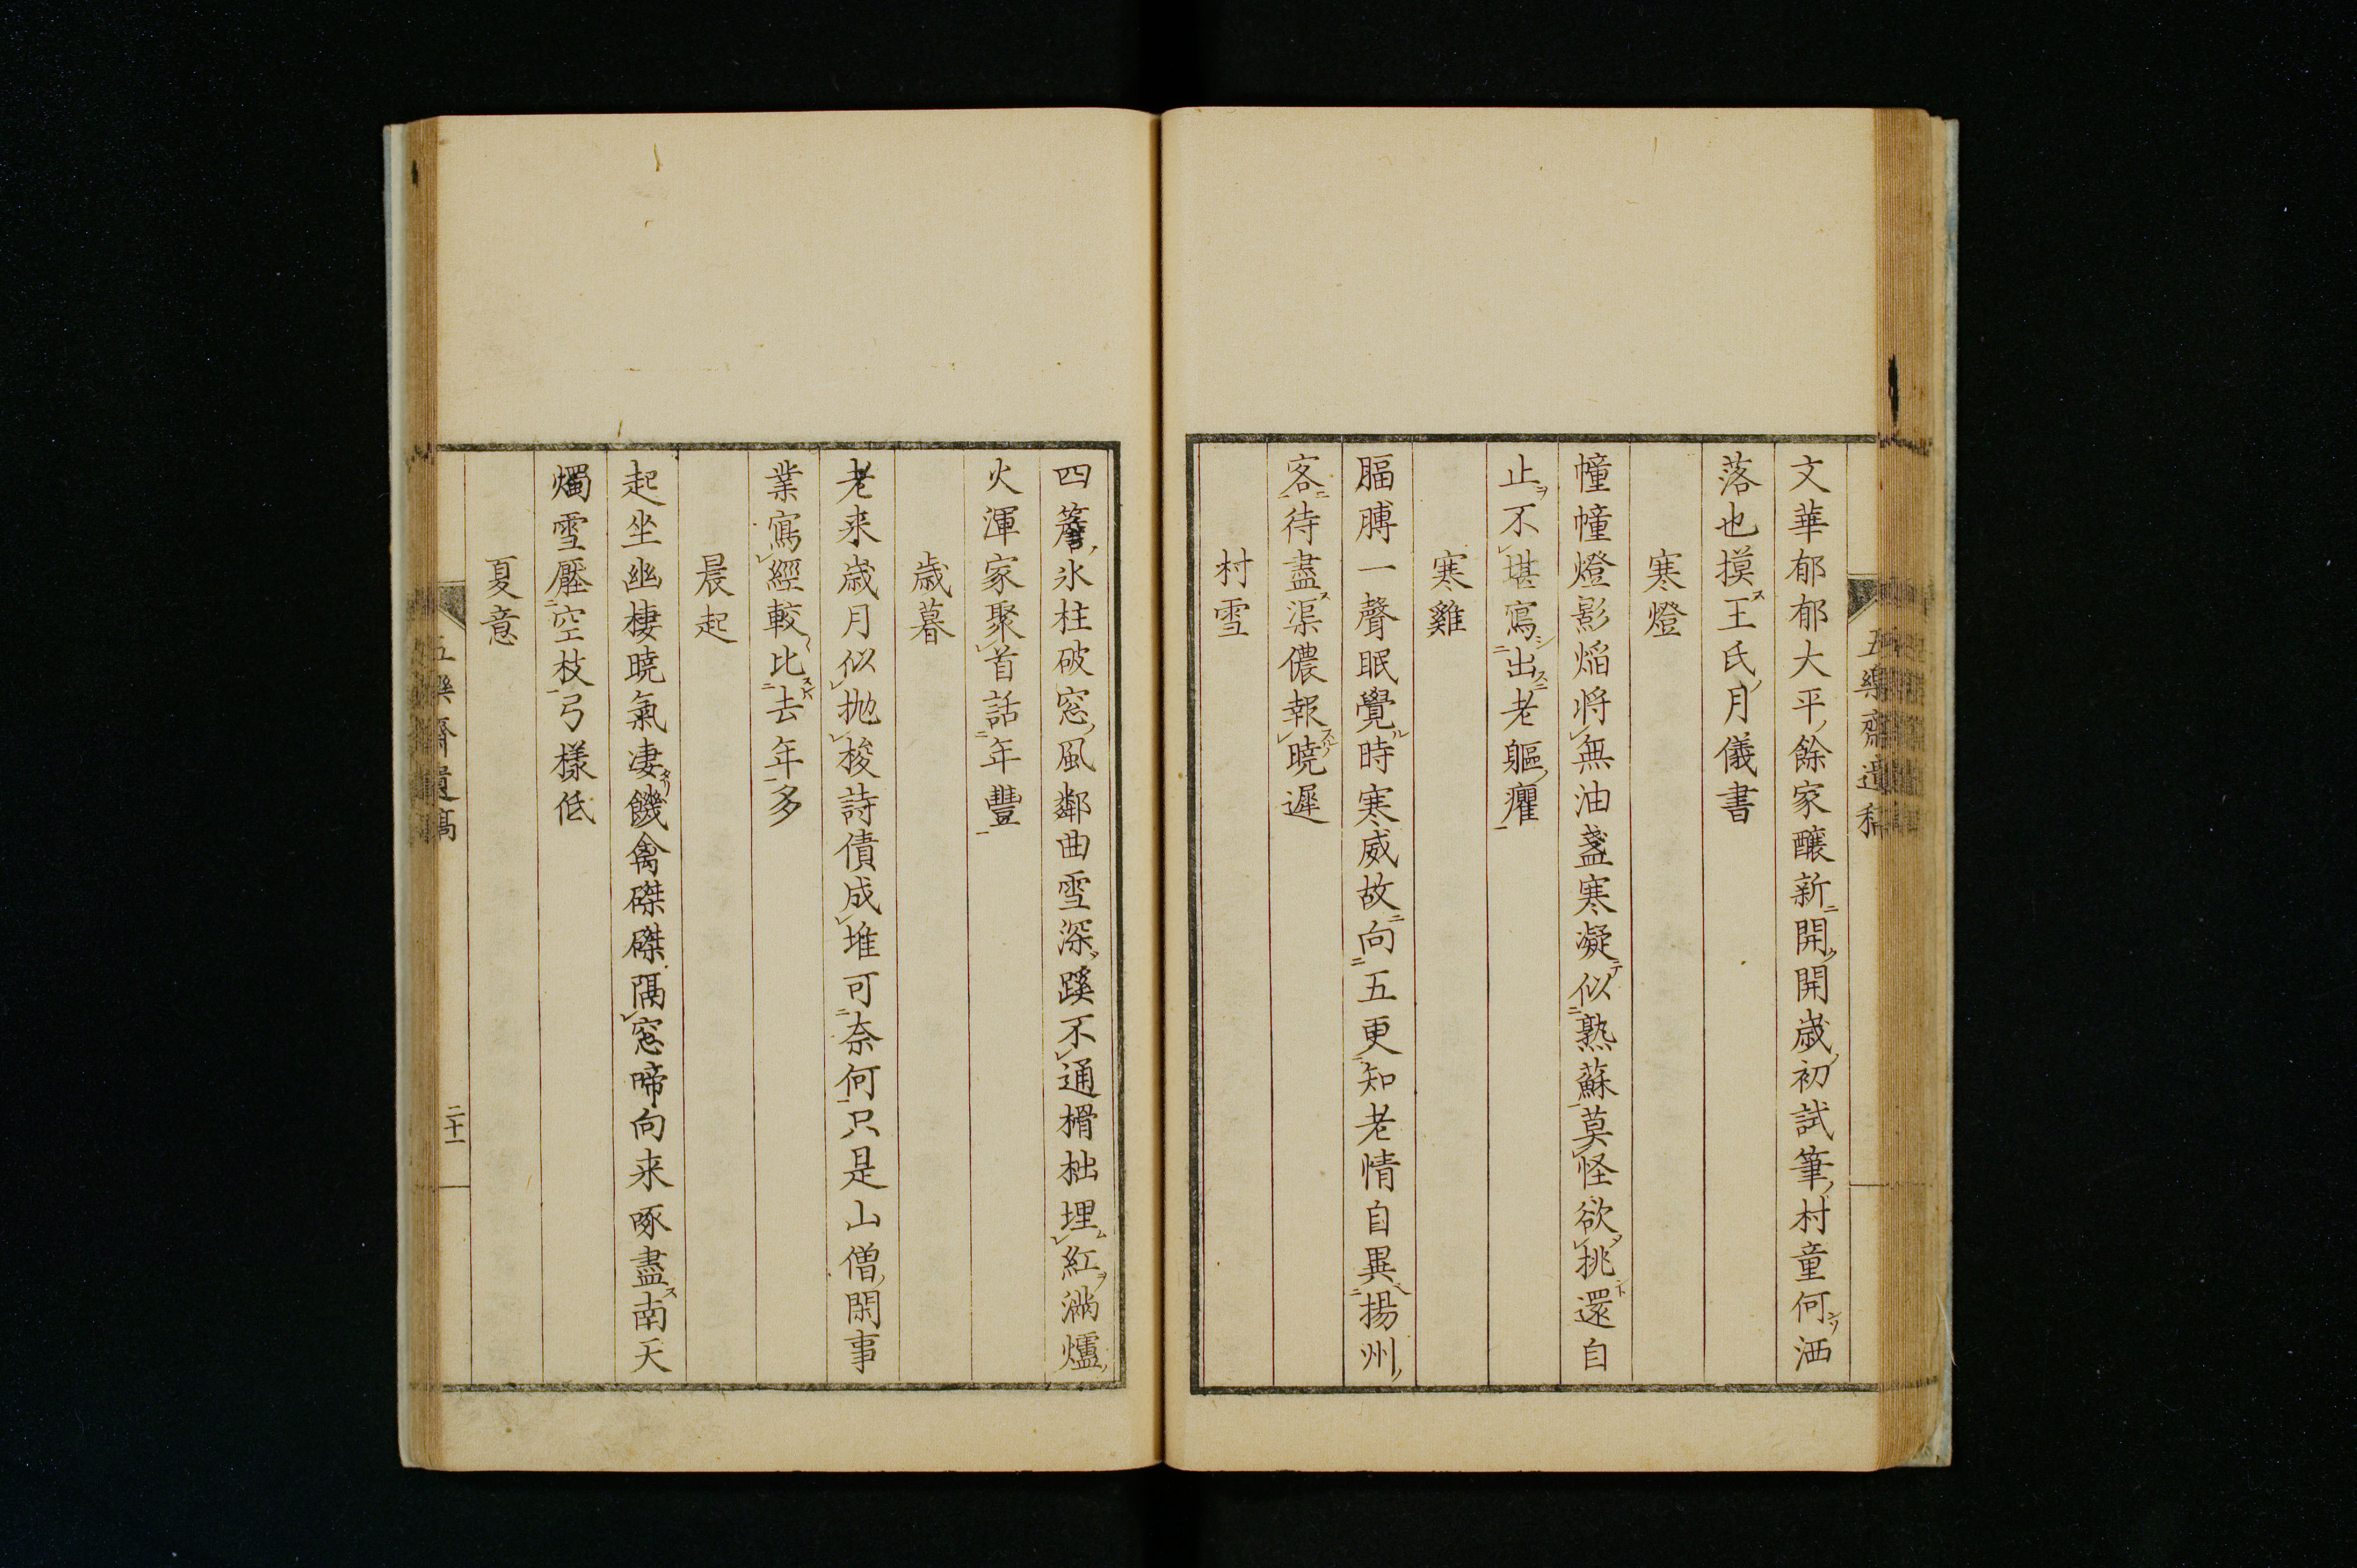 五樂齋遺稿
文華郁郁大平餘家釀新開開歳初試筆村童何洒
落也摸王氏月儀書
寒燈
幢幢燈影焔将無油盞寒凝似熟蘇莫怪欲挑還自
止不堪寫出老軀癯
寒雞
腷膊一聲眠覺時寒威故向五更知老情自異揚州
客待盡渠儂報曉遲
村雪
四簷氷柱破窓風鄰曲雪深蹊不通榾柮埋紅滿爐
火渾家聚首話年豐
歳暮
老来歳月似抛梭詩債成堆可奈何只是山僧閑事
業寫經較比去年多
晨起
起坐幽棲曉氣凄饑禽磔磔隔窓啼向来啄盡南天
燭雪壓空枝弓樣低
夏意
五樂齋遺稿
二十一